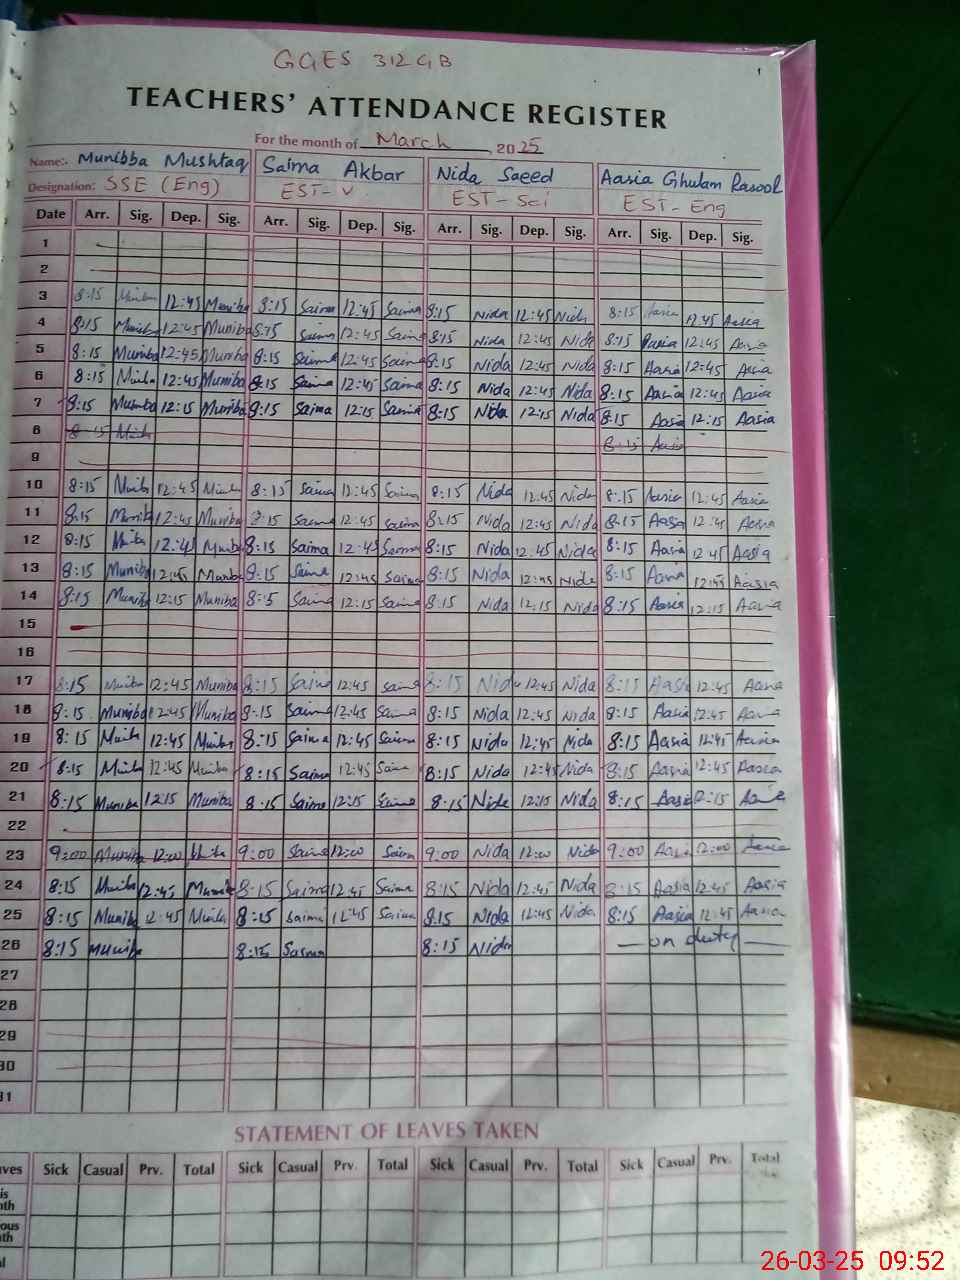 GGES 312 GB
1
TEACHERS' ATTENDANCE REGISTER
For the month of March, 2025
Name:. Munibba Mushtaq Saima Akbar Nida Saeed Aasia Ghulam Rasool
Designation: SSE (Eng) EST-V EST-Sci EST-Eng
Date Arr. Sig. Dep. Sig. Arr. Sig. Dep. Sig. Arr. Sig. Dep. Sig. Arr. Sig. Dep. Sig.
1
2
3 8:15 Muniba 12:45 Muniba 8:15 Saima 12:45 Saima 8:15 Nida 12:45 Nida 8:15 Aasia 12:45 Aasia
4 8:15 Muniba 12:45 Muniba 8:15 Saima 12:45 Saima 8:15 Nida 12:45 Nida 8:15 Aasia 12:45 Aasia
5 8:15 Muniba 12:45 Muniba 8:15 Saima 12:45 Saima 8:15 Nida 12:45 Nida 8:15 Aasia 12:45 Aasia
6 8:15 Muniba 12:45 Muniba 8:15 Saima 12:45 Saima 8:15 Nida 12:45 Nida 8:15 Aasia 12:45 Aasia
7 8:15 Muniba 12:15 Muniba 8:15 Saima 12:15 Saima 8:15 Nida 12:15 Nida 8:15 Aasia 12:15 Aasia
8 8:15 Muniba 8:15 Aasia
9
10 8:15 Muniba 12:45 Muniba 8:15 Saima 12:45 Saima 8:15 Nida 12:45 Nida 8:15 Aasia 12:45 Aasia
11 8:15 Muniba 12:45 Muniba 8:15 Saima 12:45 Saima 8:15 Nida 12:45 Nida 8:15 Aasia 12:45 Aasia
12 8:15 Muniba 12:45 Muniba 8:15 Saima 12:45 Saima 8:15 Nida 12:45 Nida 8:15 Aasia 12:45 Aasia
13 8:15 Muniba 12:45 Muniba 8:15 Saima 12:45 Saima 8:15 Nida 12:45 Nida 8:15 Aasia 12:45 Aasia
14 8:15 Muniba 12:15 Muniba 8:15 Saima 12:15 Saima 8:15 Nida 12:15 Nida 8:15 Aasia 12:15 Aasia
15
16
17 8:15 Muniba 12:45 Muniba 8:15 Saima 12:45 Saima 8:15 Nida 12:45 Nida 8:15 Aasia 12:45 Aasia
18 8:15 Muniba 12:45 Muniba 8:15 Saima 12:45 Saima 8:15 Nida 12:45 Nida 8:15 Aasia 12:45 Aasia
19 8:15 Muniba 12:45 Muniba 8:15 Saima 12:45 Saima 8:15 Nida 12:45 Nida 8:15 Aasia 12:45 Aasia
20 8:15 Muniba 12:45 Muniba 8:15 Saima 12:45 Saima 8:15 Nida 12:45 Nida 8:15 Aasia 12:45 Aasia
21 8:15 Muniba 12:15 Muniba 8:15 Saima 12:15 Saima 8:15 Nida 12:15 Nida 8:15 Aasia 12:15 Aasia
22
23 9:00 Muniba 12:00 Muniba 9:00 Saima 12:00 Saima 9:00 Nida 12:00 Nida 9:00 Aasia 12:00 Aasia
24 8:15 Muniba 12:45 Muniba 8:15 Saima 12:45 Saima 8:15 Nida 12:45 Nida 8:15 Aasia 12:45 Aasia
25 8:15 Muniba 12:45 Muniba 8:15 Saima 12:45 Saima 8:15 Nida 12:45 Nida 8:15 Aasia 12:45 Aasia
26 8:15 Muniba 8:15 Saima 8:15 Nida — on duty —
27
28
29
30
31
STATEMENT OF LEAVES TAKEN
ves Sick Casual Prv. Total Sick Casual Prv. Total Sick Casual Prv. Total Sick Casual Prv. Total
is
nth
ous
nth
l
26-03-25 09:52